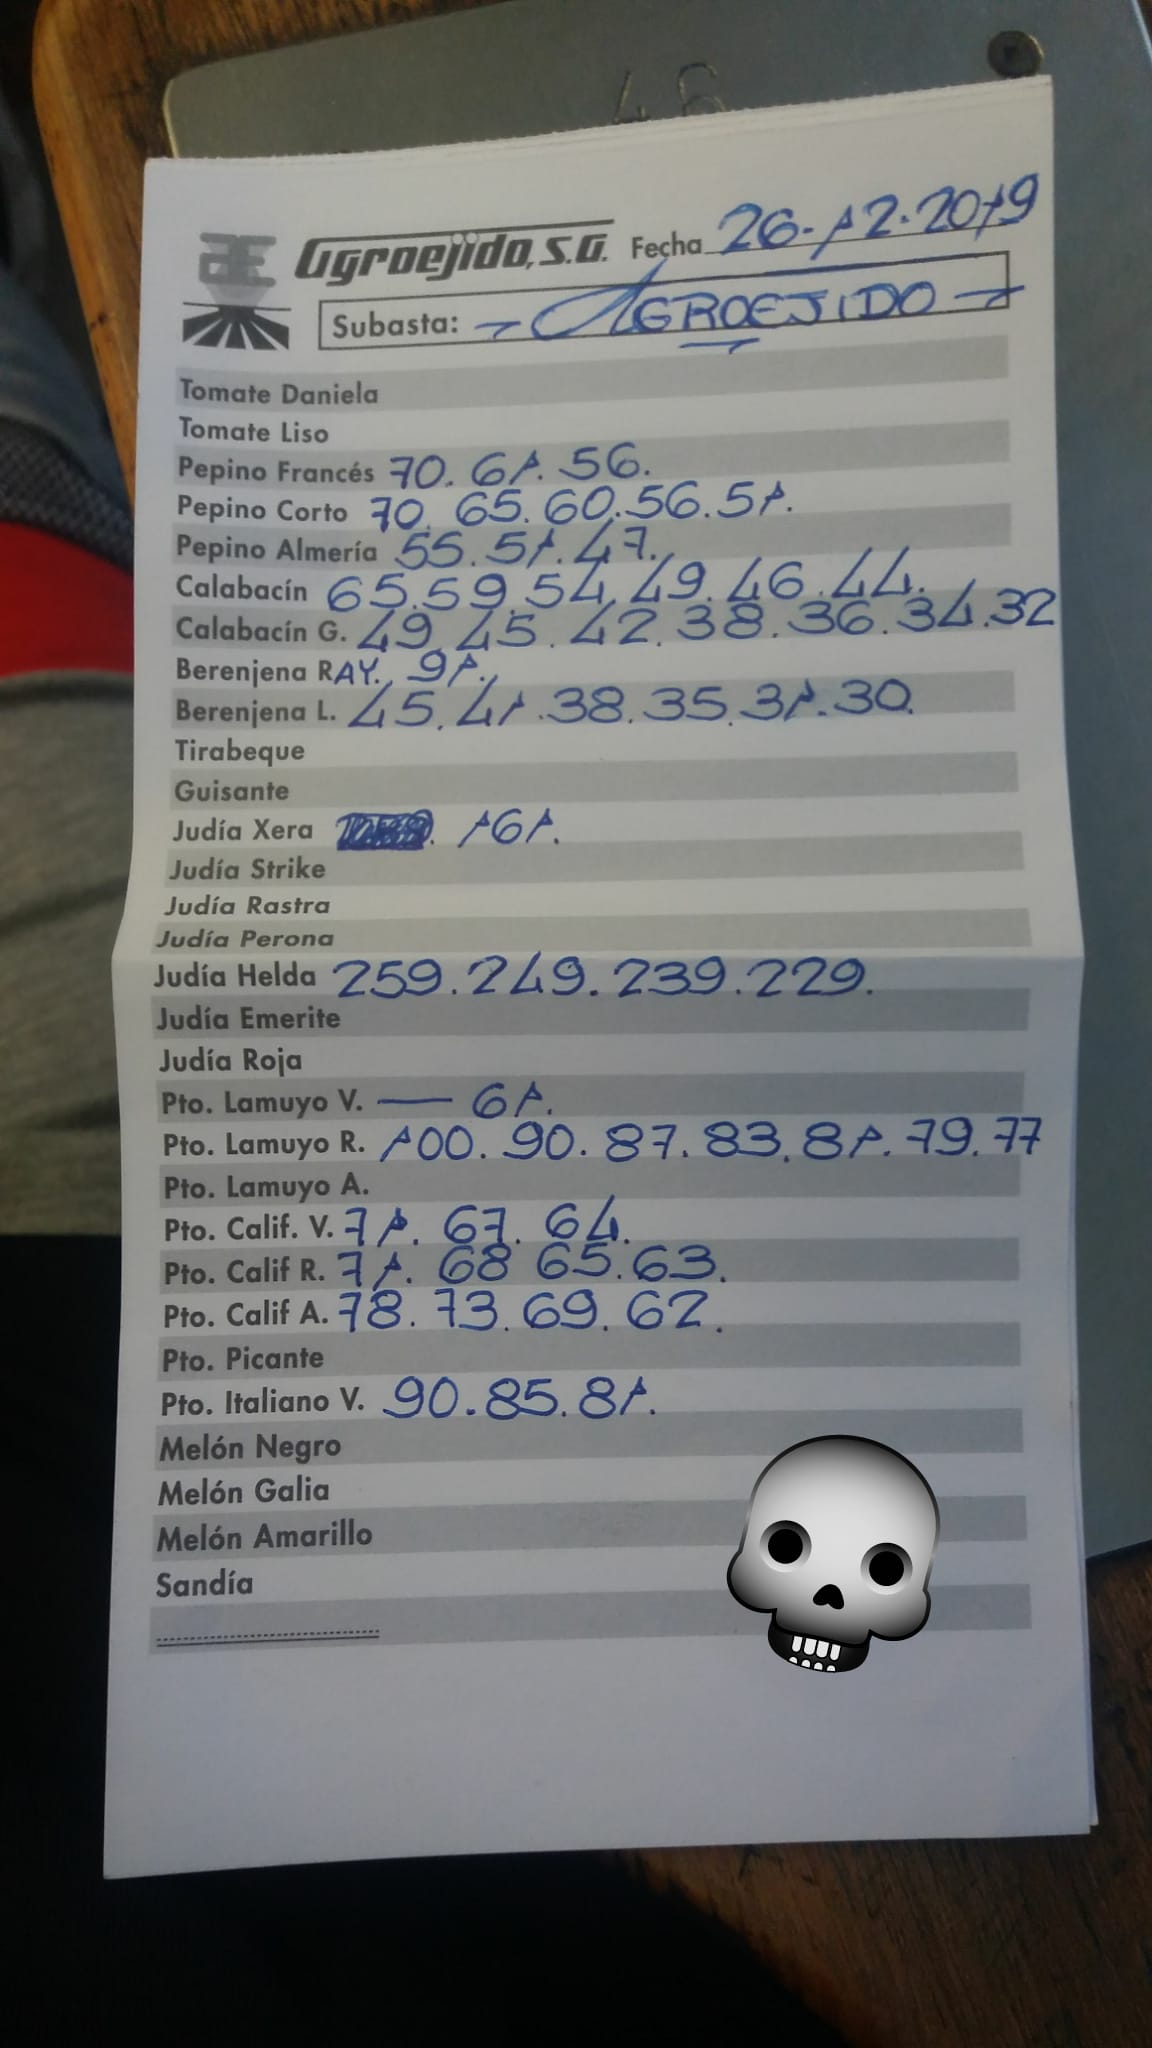 46
Agroejido, S.A. Fecha 26-12-2019
Subasta: - AGROEJIDO -
Tomate Daniela
Tomate Liso
Pepino Francés 70. 61. 56.
Pepino Corto 70. 65. 60. 56. 51.
Pepino Almería 55. 51. 47.
Calabacín 65. 59. 54. 49. 46. 44.
Calabacín G. 49. 45. 42. 38. 36. 34. 32
Berenjena RAY. 91.
Berenjena L. 45. 41. 38. 35. 31. 30.
Tirabeque
Guisante
Judía Xera 161.
Judía Strike
Judía Rastra
Judía Perona
Judía Helda 259. 249. 239. 229.
Judía Emerite
Judía Roja
Pto. Lamuyo V. — 61.
Pto. Lamuyo R. 100. 90. 87. 83. 81. 79. 77
Pto. Lamuyo A.
Pto. Calif. V. 71. 67. 64.
Pto. Calif R. 71. 68 65. 63.
Pto. Calif A. 78. 73. 69. 62.
Pto. Picante
Pto. Italiano V. 90. 85. 81.
Melón Negro
Melón Galia
Melón Amarillo
Sandía